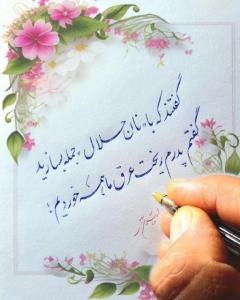 گفتند که با نان حلال، جمله بسازید
گفتم پدرم ریخت عرق ما همه خوردیم!